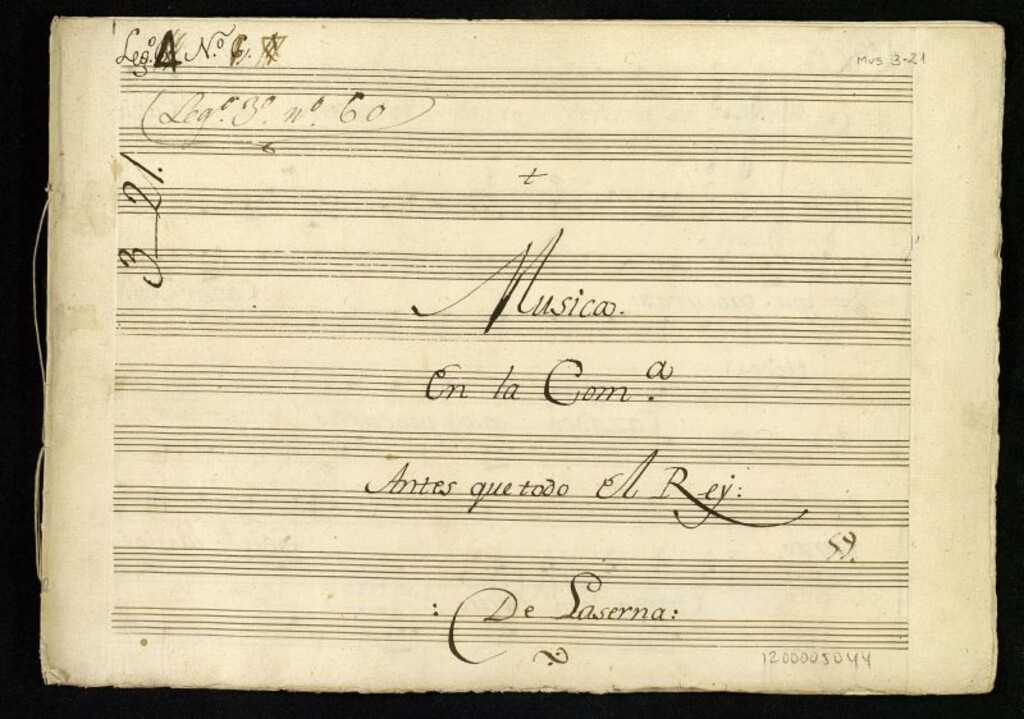 Leg.º 4 N.º
Mus 3-21
(Leg.º 3.º n.º 60
3 21.
Musica.
En la Com.ª
Antes que todo el Rey:
: De Laserna:
1200005044